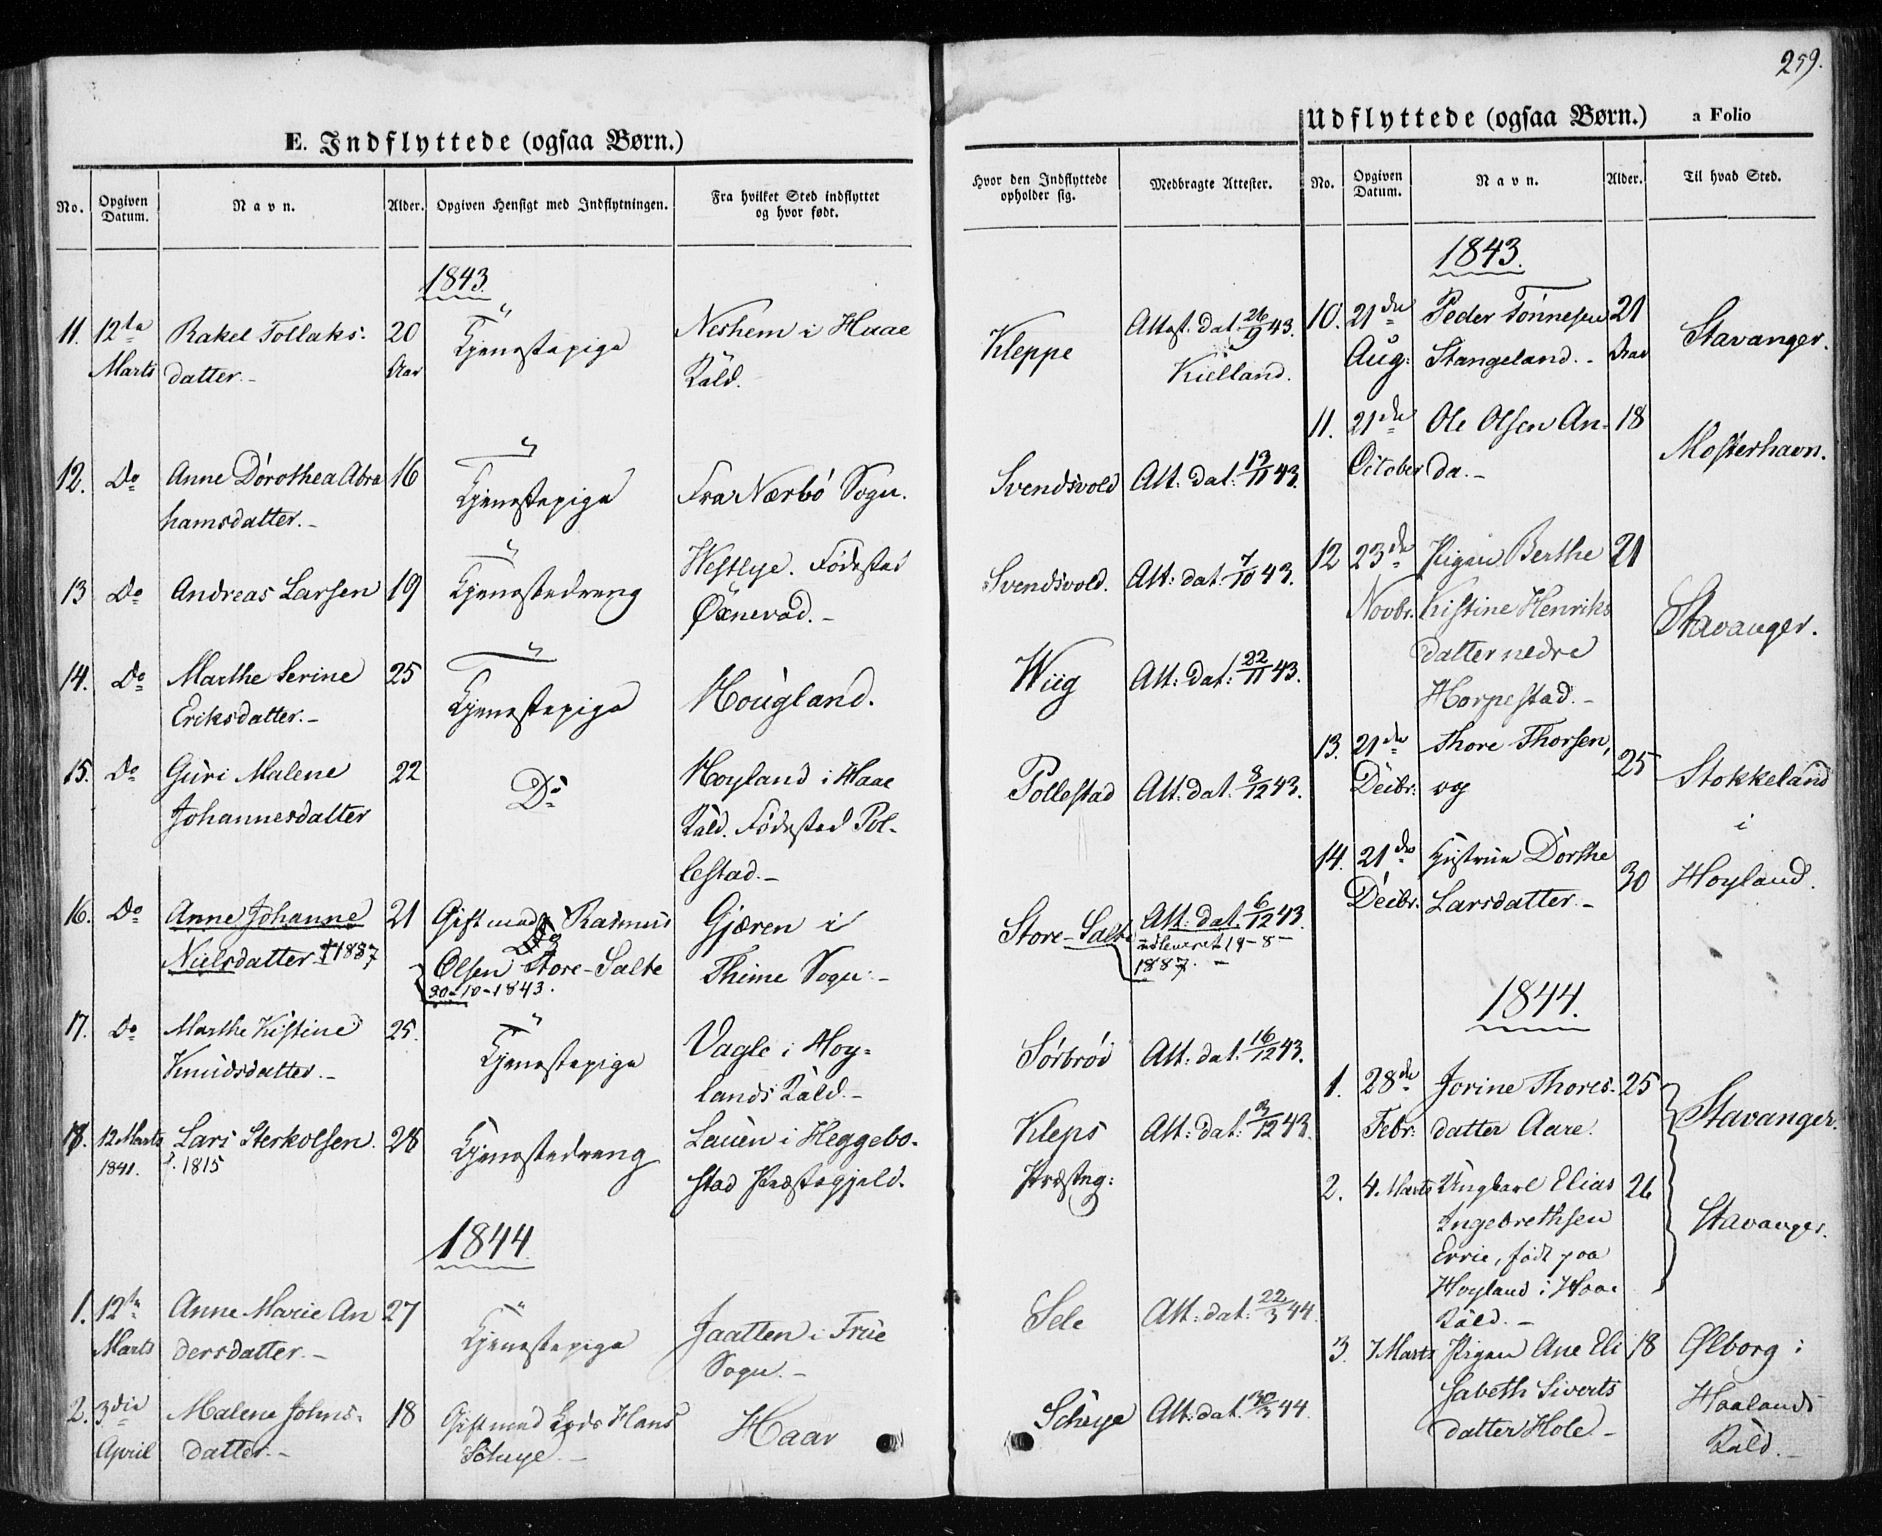 259.
E. Indflyttede (ogsaa Børn.)
No.
Opgiven Datum.
Navn.
Alder.
Opgiven Hensigt med Indflytningen.
Fra hvilket Sted indflyttet og hvor født.
1843.
11. 12te Rakel Tollaks: 20 Tjenestepige Neshem i Haae
Marts datter.- Aar Kald.
12. Do Anne Dorothea Abra 16 Tjenestepige Fra Nærbø Sogn.
hamsdatter.-
13 Do Andreas Larsen 19 Tjenestedreng Westlye. Fødested
Øxnevad.-
14. Do Marthe Serine 25 Tjenestepige Hougland.
Eriksdatter.-
15. Do Guri Malene 22 Do Høyland i Haae
Johannesdatter Kald. Fødested Pol-
lestad.-
16. Do Anne Johanne 21 Gift med Rasmus Gjæren i
Nielsdatter †1887 Olsen Store-Salte Thime Sogn:-
30-10-1843.
17. Do Marthe Kistine 25. Tjenestepige Vagle i Høy-
Knudsdatter.- lands Kald.-
18. 12 Marts Lars Sterkolsen. 28 Tjenestedreng Lauen i Heggebo-
1841. f. 1815 stad Præstegjeld.
1844.
1. 12te Anne Marie An 27 Tjenestepige Jaatten i Frue
Marts dersdatter.- Sogn.-
2. 3die Malene Johns- 18 Gift med Hans Haar
April datter.-
Hvor den Indflyttede opholder sig.
Medbragte Attester.
Kleppe Attest. dat. 26/9 43.
Kielland.
Svendsvold Att: dat: 13/11 43.
Svendsvold. Att: dat: 7/10 43.
Wiig Att: dat: 22/11 43.
Pollestad Att: dat. 8/12 43.
Store-Salte Att: dat. 6/12 43.
udleveret 18-8-
1887.-
Sørbrøi Att: dat. 16/12 43.
Kleps Att: dat: 3/12 43.
Præsteg:
Sele Att: dat: 22/3 44.
Att: dat. 30/3 44.
Udflyttede (ogsaa Børn.) a Folio
No.
Opgiven Datum.
Navn.
Alder.
Til hvad Sted.
1843.
10. 21de Peder Tønnesen 21 Stavanger.
Aug: Stangeland.- Aar
11. 21de Ole Olsen An- 18 Mosterhavn.
October da.-
12 23de Pigen Berthe 21 Stavanger.
Novbr. Kistine Henriks
datter nedre
Horpestad.-
13. 21de Thore Thorsen, 25 Stokkeland
Decbr: og i
14. 21de Hustrue Dorthe 30 Høyland.
Decbr. Larsdatter.-
1844.
1. 28de Jorine Thores- 25 Stavanger.
Febr: datter Aare.
2. 4. Marts Ungkarl Elias 26 Stavanger.
Ingebrethsen
Errie, født paa
Høyland i Haae
Kald.-
3. 7 Marts Pigen Ane Eli 18 Ølborg i
sabeth Siverts Haalands
datter Hole- Kald.-